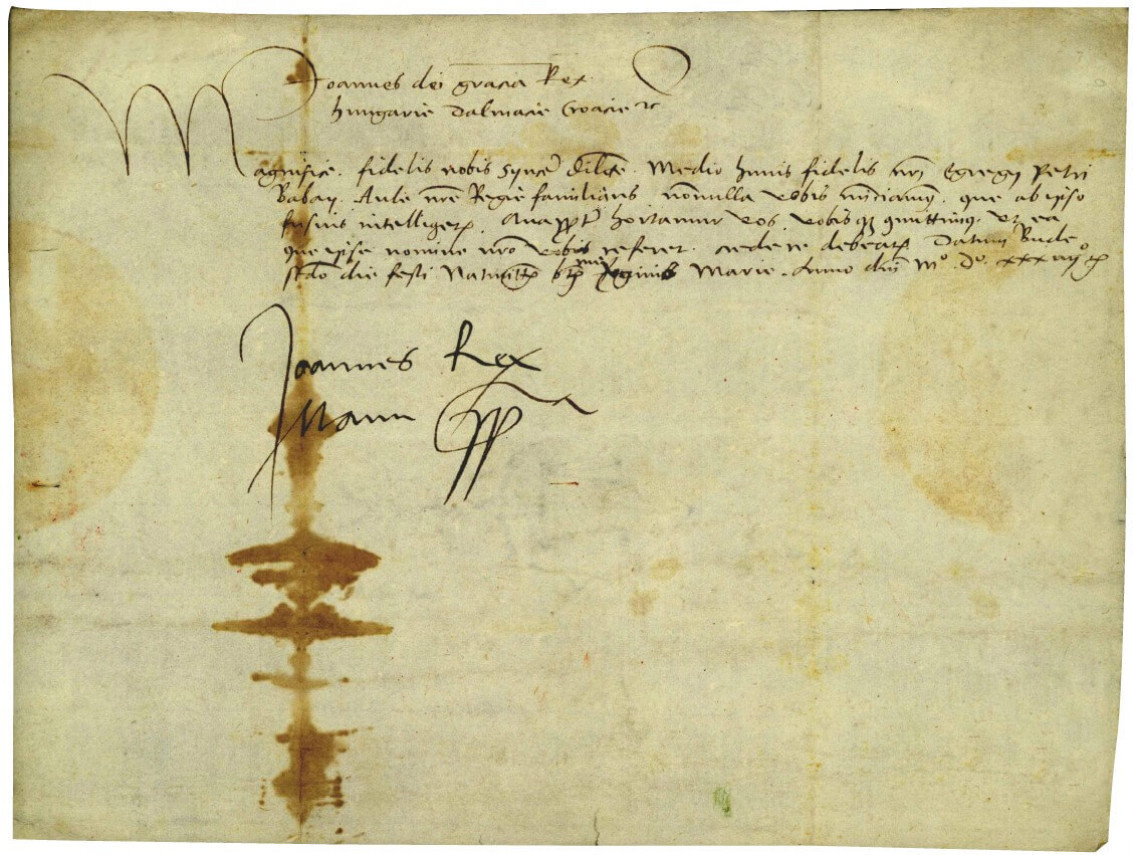 Joannes dei gracia Rex
hungarie Dalmacie Croacie rc
Magnifice. fidelis nobis syncere dilcte. Medio huius fidelis nri Egregij Petri
Babay. Aule nre Regie familiaris nonnulla vobis nunciamus. que ab ipso
fusius intelligetis. Quapropter hortamur vos vobisque committimus. ut ea
que ipse nomine nro vobis referet. credere debeatis. Datum Bude
scdo die festi Natiuitatis bte Marie virginis Marie. Anno dni Mo. Do.
Joannes Rex
manu ppa